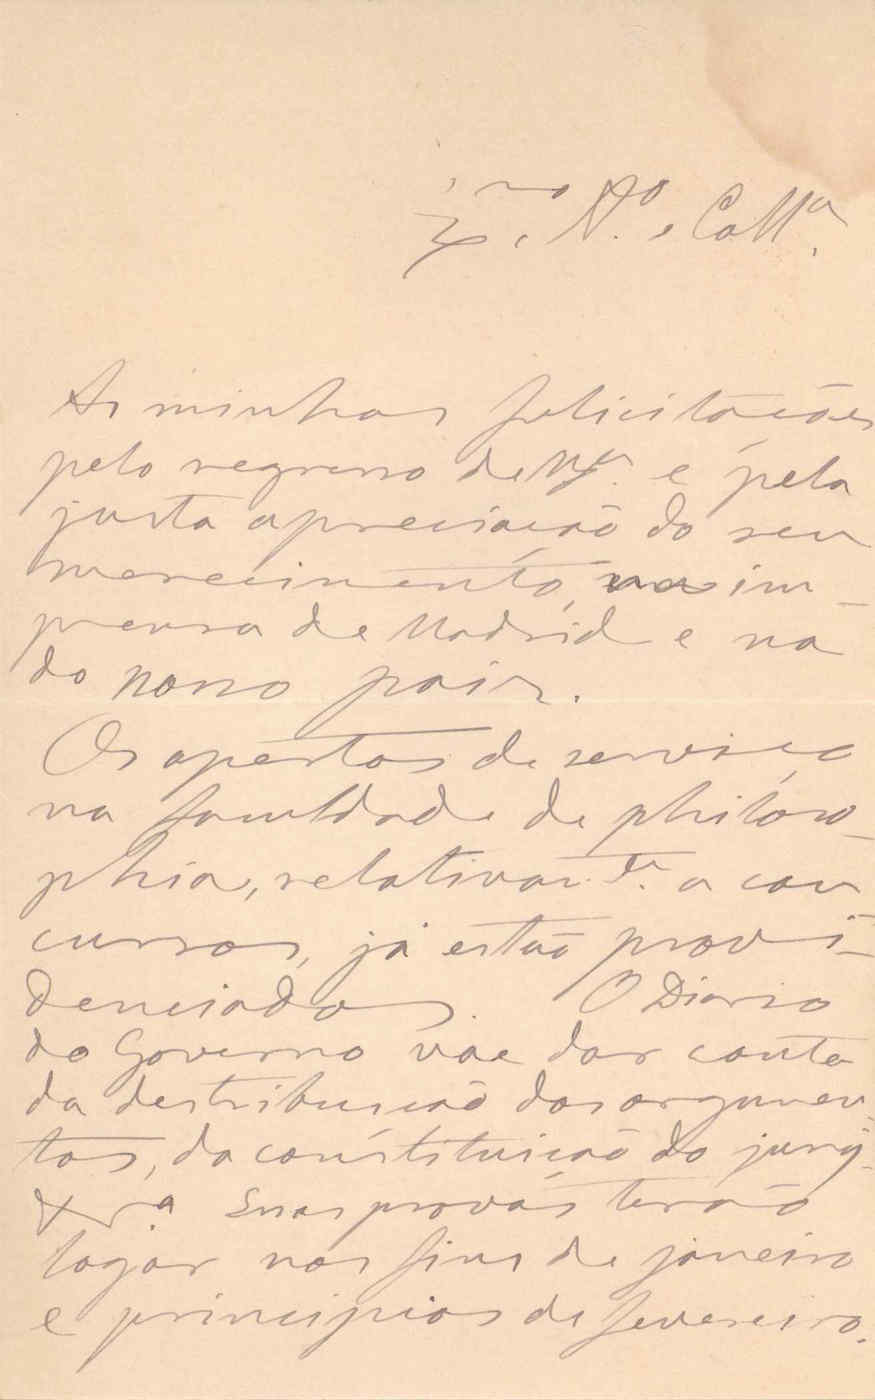 Ex.mo A.o e Coll.a
As minhas felicitações
pelo regresso de V. e pela
justa apreciação do seu
merecimento, na im-
prensa de Madrid e na
do nosso paiz.
Os apertos de serviço
na faculdade de philoso-
phia, relativam.te a con
cursos, já estão provi-
denciados. O Diario
do Governo vae dar conta
da destribuição dos argumen-
tos, da constituição do jury,
&ra Suas provas terão
logar nos fins de janeiro
e principios de fevereiro.